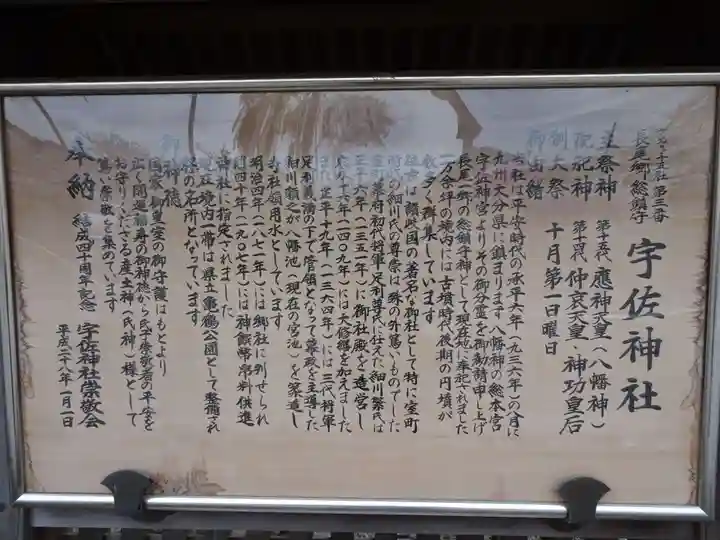 長尾郷総鎮守
宇佐神社
主祭神 第十五代 應神天皇(八幡神)
配祀神 第十四代 仲哀天皇 神功皇后
例大祭 十月第一日曜日
御由緒
当社は平安時代の承平六年(九三六年)の八月に
九州大分県に鎮まります八幡神の総本宮
宇佐神宮よりその御分霊を御勧請申し上げ
長尾一郷の総鎮守神として現在地に奉祀されました
一万余坪の境内には古墳時代後期の円墳が
数多く群集しています
往古は讃岐国の著名な御社として特に室町
時代の細川氏の尊崇は殊の外篤いものでした
正平六年(一三五一年)に御社殿を造営し
室町幕府初代将軍足利尊氏に仕えた細川繁氏は
応永十六年(一四〇九年)には大修郷を加えました
正平十九年(一三六四年)には三代将軍
足利義満の下で管領となって幕政を主導した
細川頼之が八幡池(現在の宮池)を築造し
当社領用水としています
明治四年(八七一年)には郷社に列せられ
同四十年(一九〇七年)には神饌幣帛料供進
神社に指定されました
現在境内一帯は県立亀鶴公園として整備され
桜の名所となっています
御神徳
国家・皇室の御守護はもとより
広く開運・厄除の御神徳から氏子崇敬者の平安を
お守りくださる産土神(氏神)様として
篤い崇敬を集めています
奉納 結成四十周年記念 宇佐神社崇敬会
平成二十八年一月一日